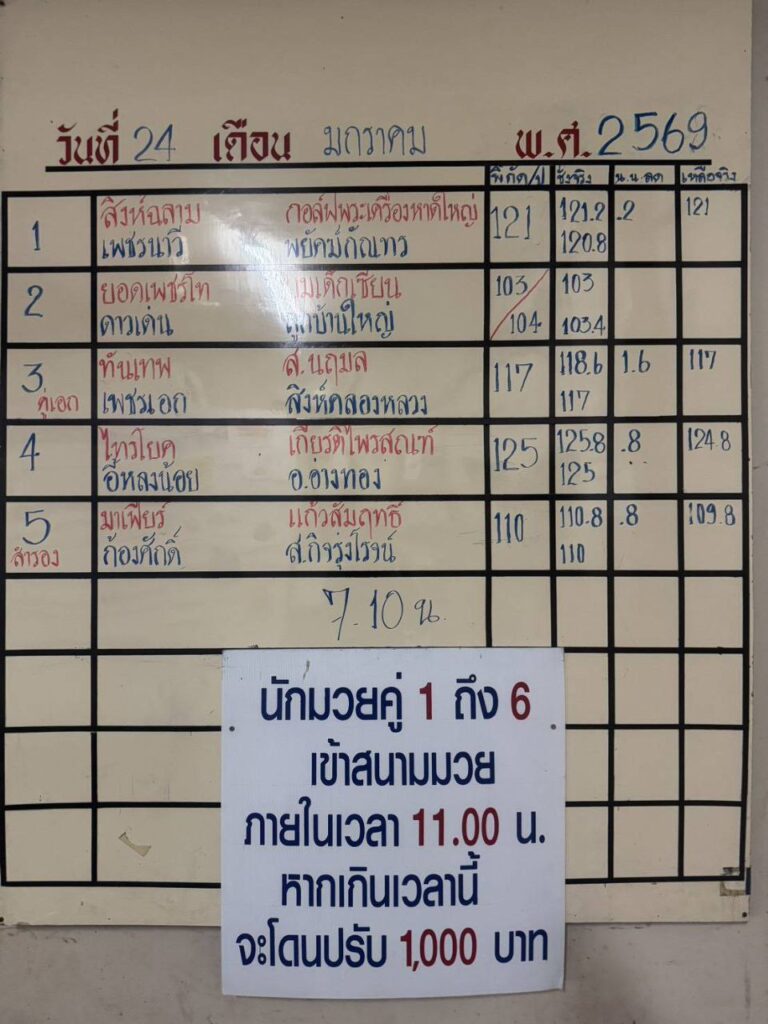 วันที่ 24 เดือน มกราคม พ.ศ. 2569
พิกัด/ป ชั่งจริง น.น.ลด เหลือจริง
1 สิงห์ฉลาม กอล์ฟพระเครื่องหาดใหญ่ 121 121.2 .2 121
เพชรนาวี พยัคฆ์กัณทร 120.8
2 ยอดเพชรโท เด็กเซียน 103 103
ดาวเด่น บ้านใหญ่ 104 103.4
3 ทันเทพ ส.นฤมล 117 118.6 1.6 117
คู่เอก เพชรเอก สิงห์คลองหลวง 117
4 ไทรโยค เกียรติไพรสณฑ์ 125 125.8 .8 124.8
อีหลงน้อย อ.อ่างทอง 125
5 มาเฟียร์ แก้วสัมฤทธิ์ 110 110.8 .8 109.8
สำรอง ก้องศักดิ์ ส.กิจรุ่งโรจน์ 110
7.10 น.
นักมวยคู่ 1 ถึง 6
เข้าสนามมวย
ภายในเวลา 11.00 น.
หากเกินเวลานี้
จะโดนปรับ 1,000 บาท